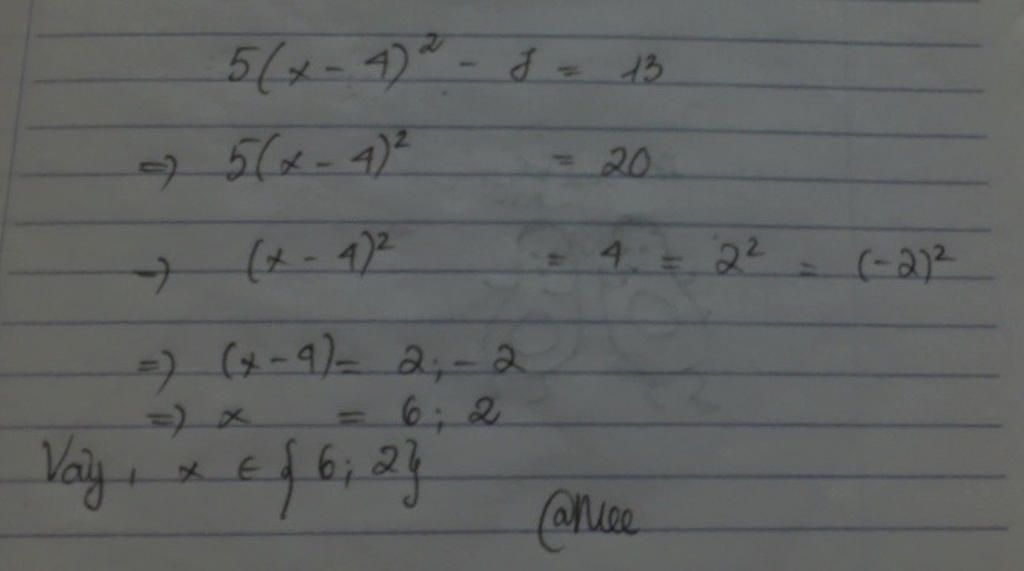 5(x - 4)² - 7 = 13
=> 5(x - 4)² = 20
-> (x - 4)² = 4 = 2² = (-2)²
=> (x - 4) = 2; - 2
=> x = 6; 2
Vậy, x ∈ { 6; 2}
@Mee